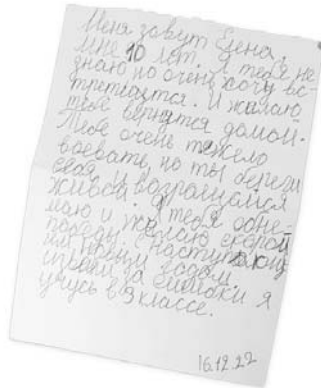 Меня зовут Елена,
мне 10 лет. Я тебя не
знаю но очень хочу вс-
третится. И желаю
тебе вернутся домой.
Тебе очень тяжело
воевать, но ты береги
себя и возращайся
живой. Я тебя обне-
маю и желаю скорой
победы. С наступающи
им новым годом.
учусь в 3 классе.
16.12.22